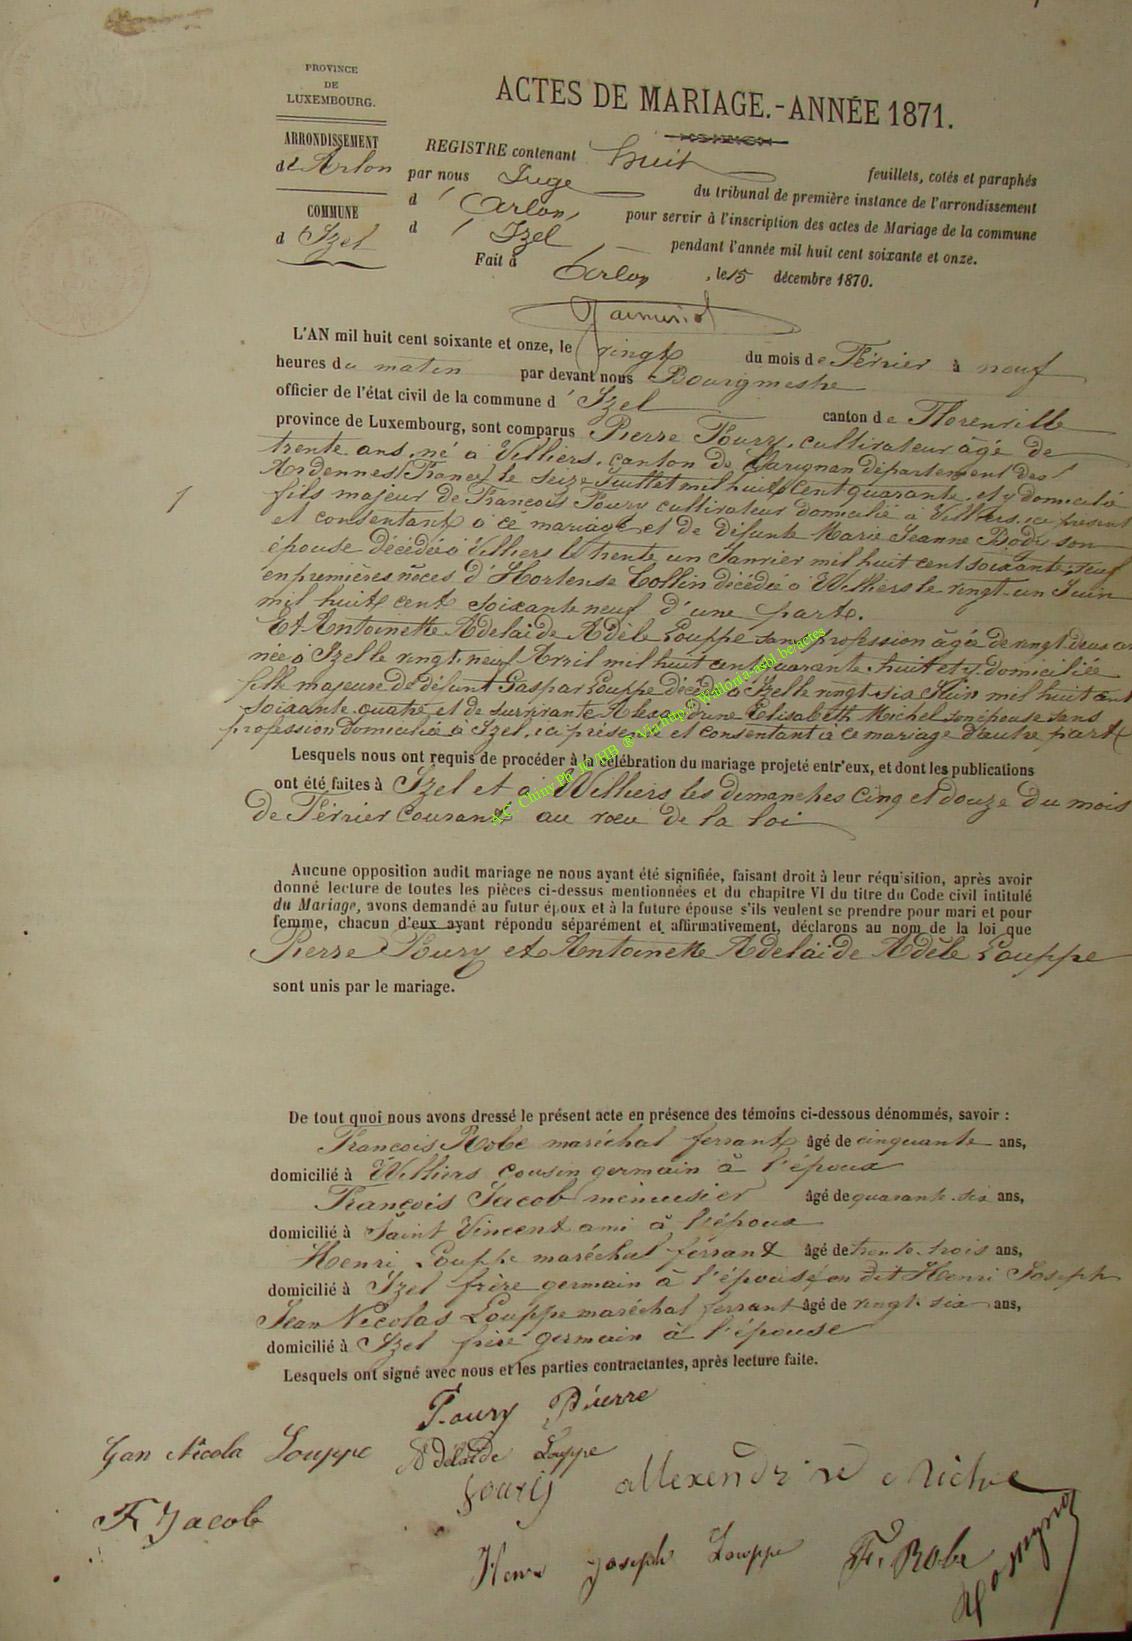 PROVINCE
DE
LUXEMBOURG.
ARRONDISSEMENT
d' Arlon
COMMUNE
d' Izel
ACTES DE MARIAGE.-ANNÉE 1871.
REGISTRE contenant huit feuillets, cotés et paraphés
par nous Juge du tribunal de première instance de l'arrondissement
d' Arlon, pour servir à l'inscription des actes de Mariage de la commune
d' Izel, pendant l'année mil huit cent soixante et onze.
Fait à Arlon, le 15 décembre 1870.
1
L'AN mil huit cent soixante et onze, le vingt du mois de Février à neuf
heures du matin par devant nous Bourgmestre
officier de l'état civil de la commune d' Izel canton de Florenville
province de Luxembourg, sont comparus Pierre Foury, cultivateur âgé de
trente ans, né à Villiers, canton de Carignan département des
Ardennes (France) le seize Juillet mil huit cent quarante, et y domicilié
fils majeur de François Foury cultivateur domicilié à Villiers, ici présent
et consentant à ce mariage et de défunte Marie Jeanne son
épouse décédée à Villiers le trente un Janvier mil huit cent soixante, veuf
en premières nôces d'Hortense Collin décédée à Williers le vingt-un Juin
mil huit cent soixante neuf d'une part.
Et Antoinette Adelaïde Adèle Louppe sans profession âgée de vingt-deux an
née à Izel le vingt-neuf Avril mil huit cent quarante-huit et y domiciliée
fille majeure de défunt Gaspar Louppe décédé à Izel le vingt-six Juin mil huit cent
soixante-quatre et de survivante Alexandrine Elisabeth Michel son épouse sans
profession domiciliée à Izel, ici présente et consentant à ce mariage d'autre part
Lesquels nous ont requis de procéder à la célébration du mariage projeté entr'eux, et dont les publications
ont été faites à Izel et à Williers les dimanches cinq et douze du mois
de Février courant au vœu de la loi
A.C. Chiny Ph. R/HB ® Via http://Wallonia-asbl.be/actes
Aucune opposition audit mariage ne nous ayant été signifiée, faisant droit à leur réqu'sition, après avoir
donné lecture de toutes les pièces ci-dessus mentionnées et du chapitre VI du titre du Code civil intitulé
du Mariage, avons demandé au futur époux et à la future épouse s'ils veulent se prendre pour mari et pour
femme, chacun d'eux ayant répondu séparément et affirmativement, déclarons au nom de la loi que
Pierre Foury et Antoinette Adelaïde Adèle Louppe
sont unis par le mariage.
De tout quoi nous avons dressé le présent acte en présence des témoins ci-dessous dénommés, savoir :
François Robe maréchal ferrant âgé de cinquante ans,
domicilié à Williers cousin germain à l'époux
François Jacob menuisier âgé de quarante-six ans,
domicilié à Saint Vincent ami à l'époux
Henri Louppe maréchal ferrant âgé de trente-trois ans,
domicilié à Izel frère germain à l'épouse, on dit Henri Joseph
Jean Nicolas Louppe maréchal ferrant âgé de vingt-six ans,
domicilié à Izel frère germain à l'épouse
Lesquels ont signé avec nous et les parties contractantes, après lecture faite.
Foury Pierre
Jan Nicola Louppe Adélaïde Louppe
allexendrine Miche
F Jacob
Henri Joseph Louppe F. Robe